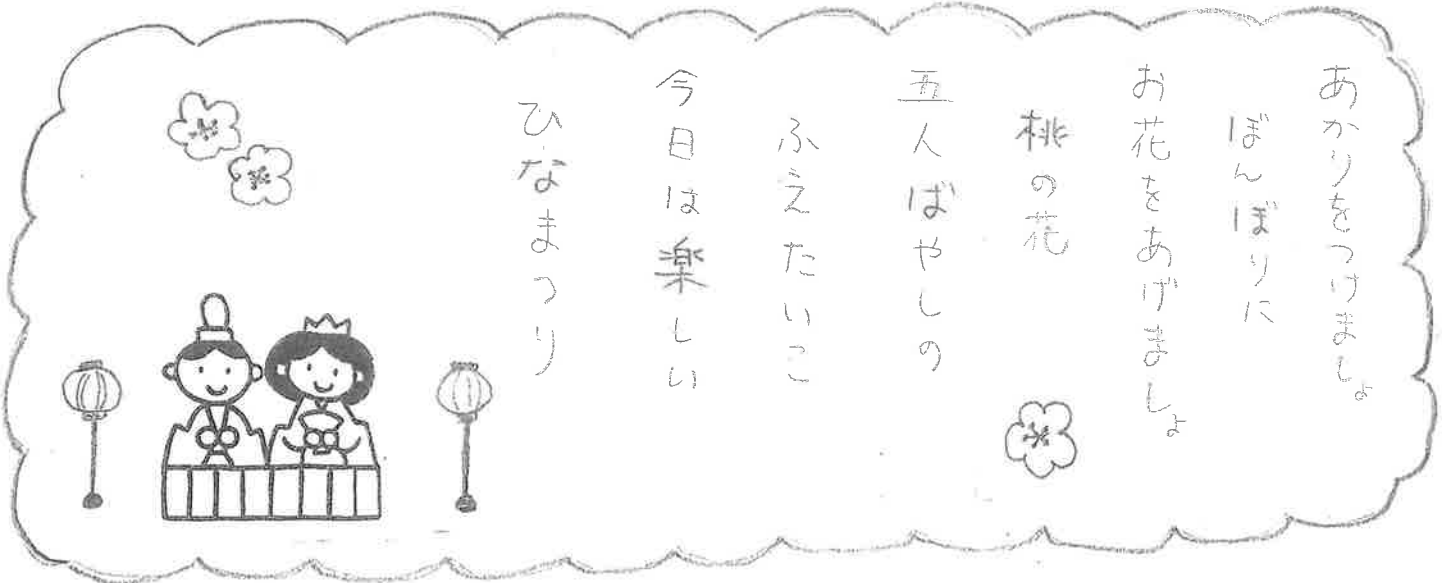 あかりをつけましょ
ぼんぼりに
お花をあげましょ
桃の花
五人ばやしの
ふえたいこ
今日は楽しい
ひなまつり